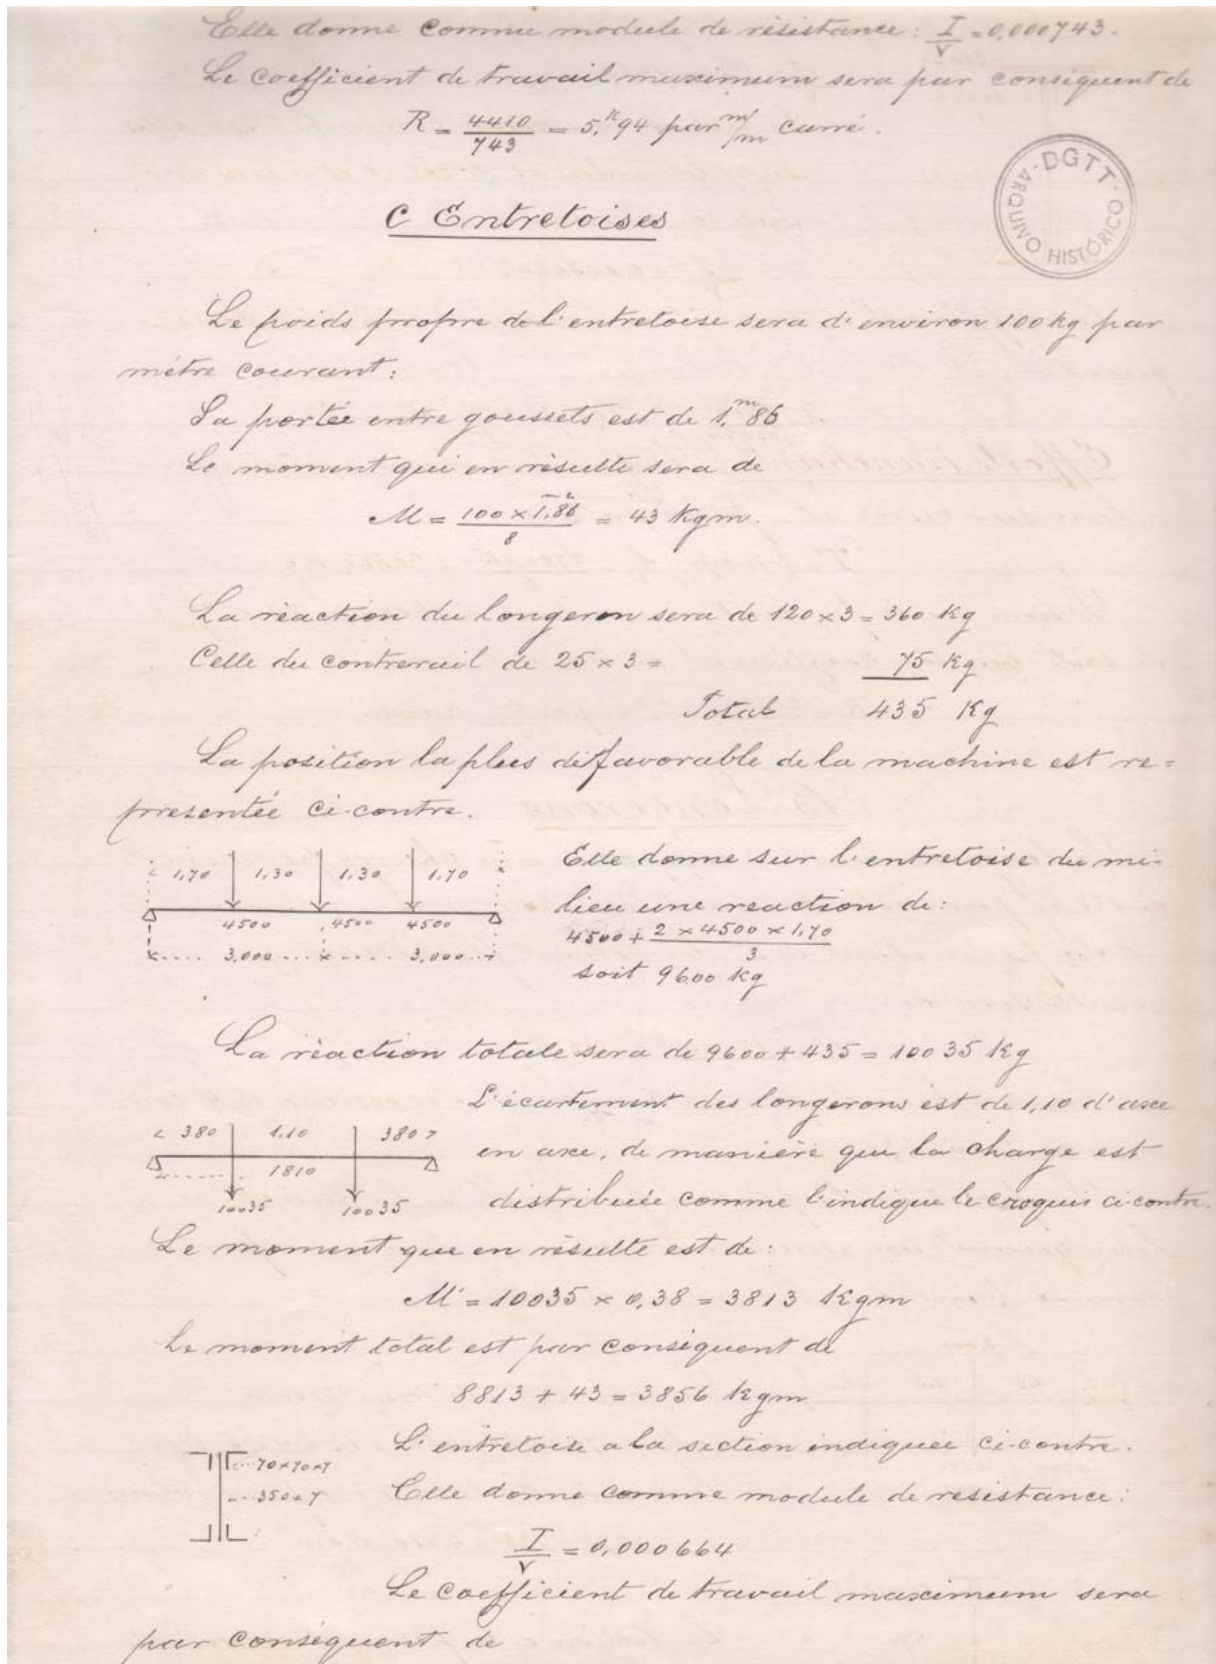 Elle donne comme module de résistance : I/V = 0,000743.
Le coefficient de travail maximum sera par conséquent de
R = 4410/743 = 5,k94 par m/m carré.
DGTT - ARQUIVO HISTÓRICO
C Entretoises
Le poids propre de l'entretoise sera d'environ 100 kg par
mètre courant :
Sa portée entre goussets est de 1,m86
Le moment qui en résulte sera de
M = 100 × 1,86²/8 = 43 Kgm.
La réaction du longeron sera de 120 × 3 = 360 Kg
Celle du contrerail de 25 × 3 = 75 Kg
Total 435 Kg
La position la plus défavorable de la machine est re=
présentée ci-contre.
1,70 1,30 1,30 1,70
4500 4500 4500
3,000 3,000
Elle donne sur l'entretoise du mi-
lieu une reaction de :
4500 + 2 × 4500 × 1,70/3
soit 9600 kg
La réaction totale sera de 9600 + 435 = 10035 Kg
380 1,10 380
1810
10035 10035
L'écartement des longerons est de 1,10 d'axe
en axe, de manière que la charge est
distribuée comme l'indique le croquis ci-contre.
Le moment que en résulte est de :
M' = 10035 × 0,38 = 3813 Kgm
Le moment total est par conséquent de
8813 + 43 = 3856 kgm
70×70×7
350×7
L'entretoise a la section indiquée ci-contre.
Elle donne comme module de resistance :
I/V = 0,000664
Le coefficient de travail maximum sera
par conséquent de